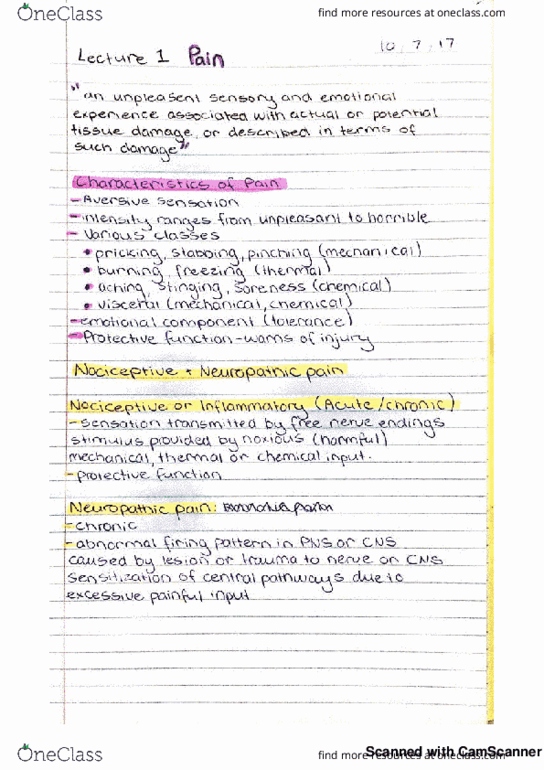 OneClass
find more resources at oneclass.com
10/7/17
Lecture 1 Pain
"an unpleasent sensory and emotional
experience associated with actual or potential
tissue damage, or described in terms of
such damage"
Characteristics of Pain
- Aversive sensation
- intensity ranges from unpleasant to horrible
- Various classes
• pricking, stabbing, pinching (mechanical)
• burning, freezing (thermal)
• aching, stinging, soreness (chemical)
• visceral (mechanical, chemical)
- emotional component (tolerance)
- Protective function - warns of injury
Nociceptive + Neuropathic pain
Nociceptive or Inflammatory (Acute/chronic)
- Sensation transmitted by free nerve endings
stimulus provided by noxious (harmful)
mechanical, thermal or chemical input.
- protective function
Neuropathic pain:
- chronic
- abnormal firing pattern in PNS or CNS
caused by lesion or trauma to nerve or CNS
sensitization of central pathways due to
excessive painful input
OneClass
find more resources at oneclass.com
Scanned with CamScanner